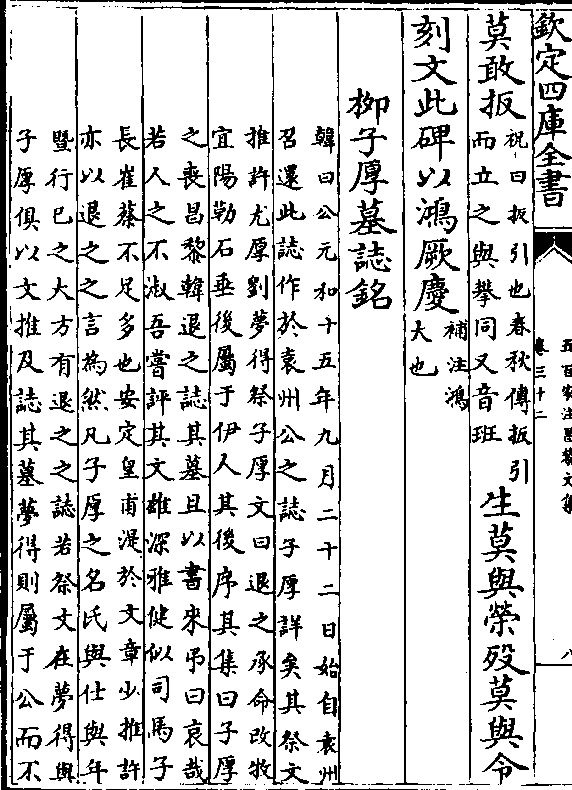 欽定四庫全書
五百家注昌黎文集
卷三十二
八
莫敢扳
祝曰扳引也春秋傳扳引
而立之與攀同又音班
生莫與榮歿莫與令
刻文此碑以鴻厥慶
補注鴻
大也
柳子厚墓誌銘
韓曰公元和十五年九月二十二日始自袁州
召還此誌作於袁州公之誌子厚詳矣其祭文
推許尤厚劉夢得祭子厚文曰退之承命改牧
宜陽勒石垂後屬于伊人其後序其集曰子厚
之喪昌黎韓退之誌其墓且以書來弔曰哀哉
若人之不淑吾嘗評其文雄深雅健似司馬子
長崔蔡不足多也安定皇甫湜於文章少推許
亦以退之之言為然凡子厚之名氏與仕與年
暨行已之大方有退之之誌若祭文在夢得與
子厚俱以文推及誌其墓夢得則屬于公而不